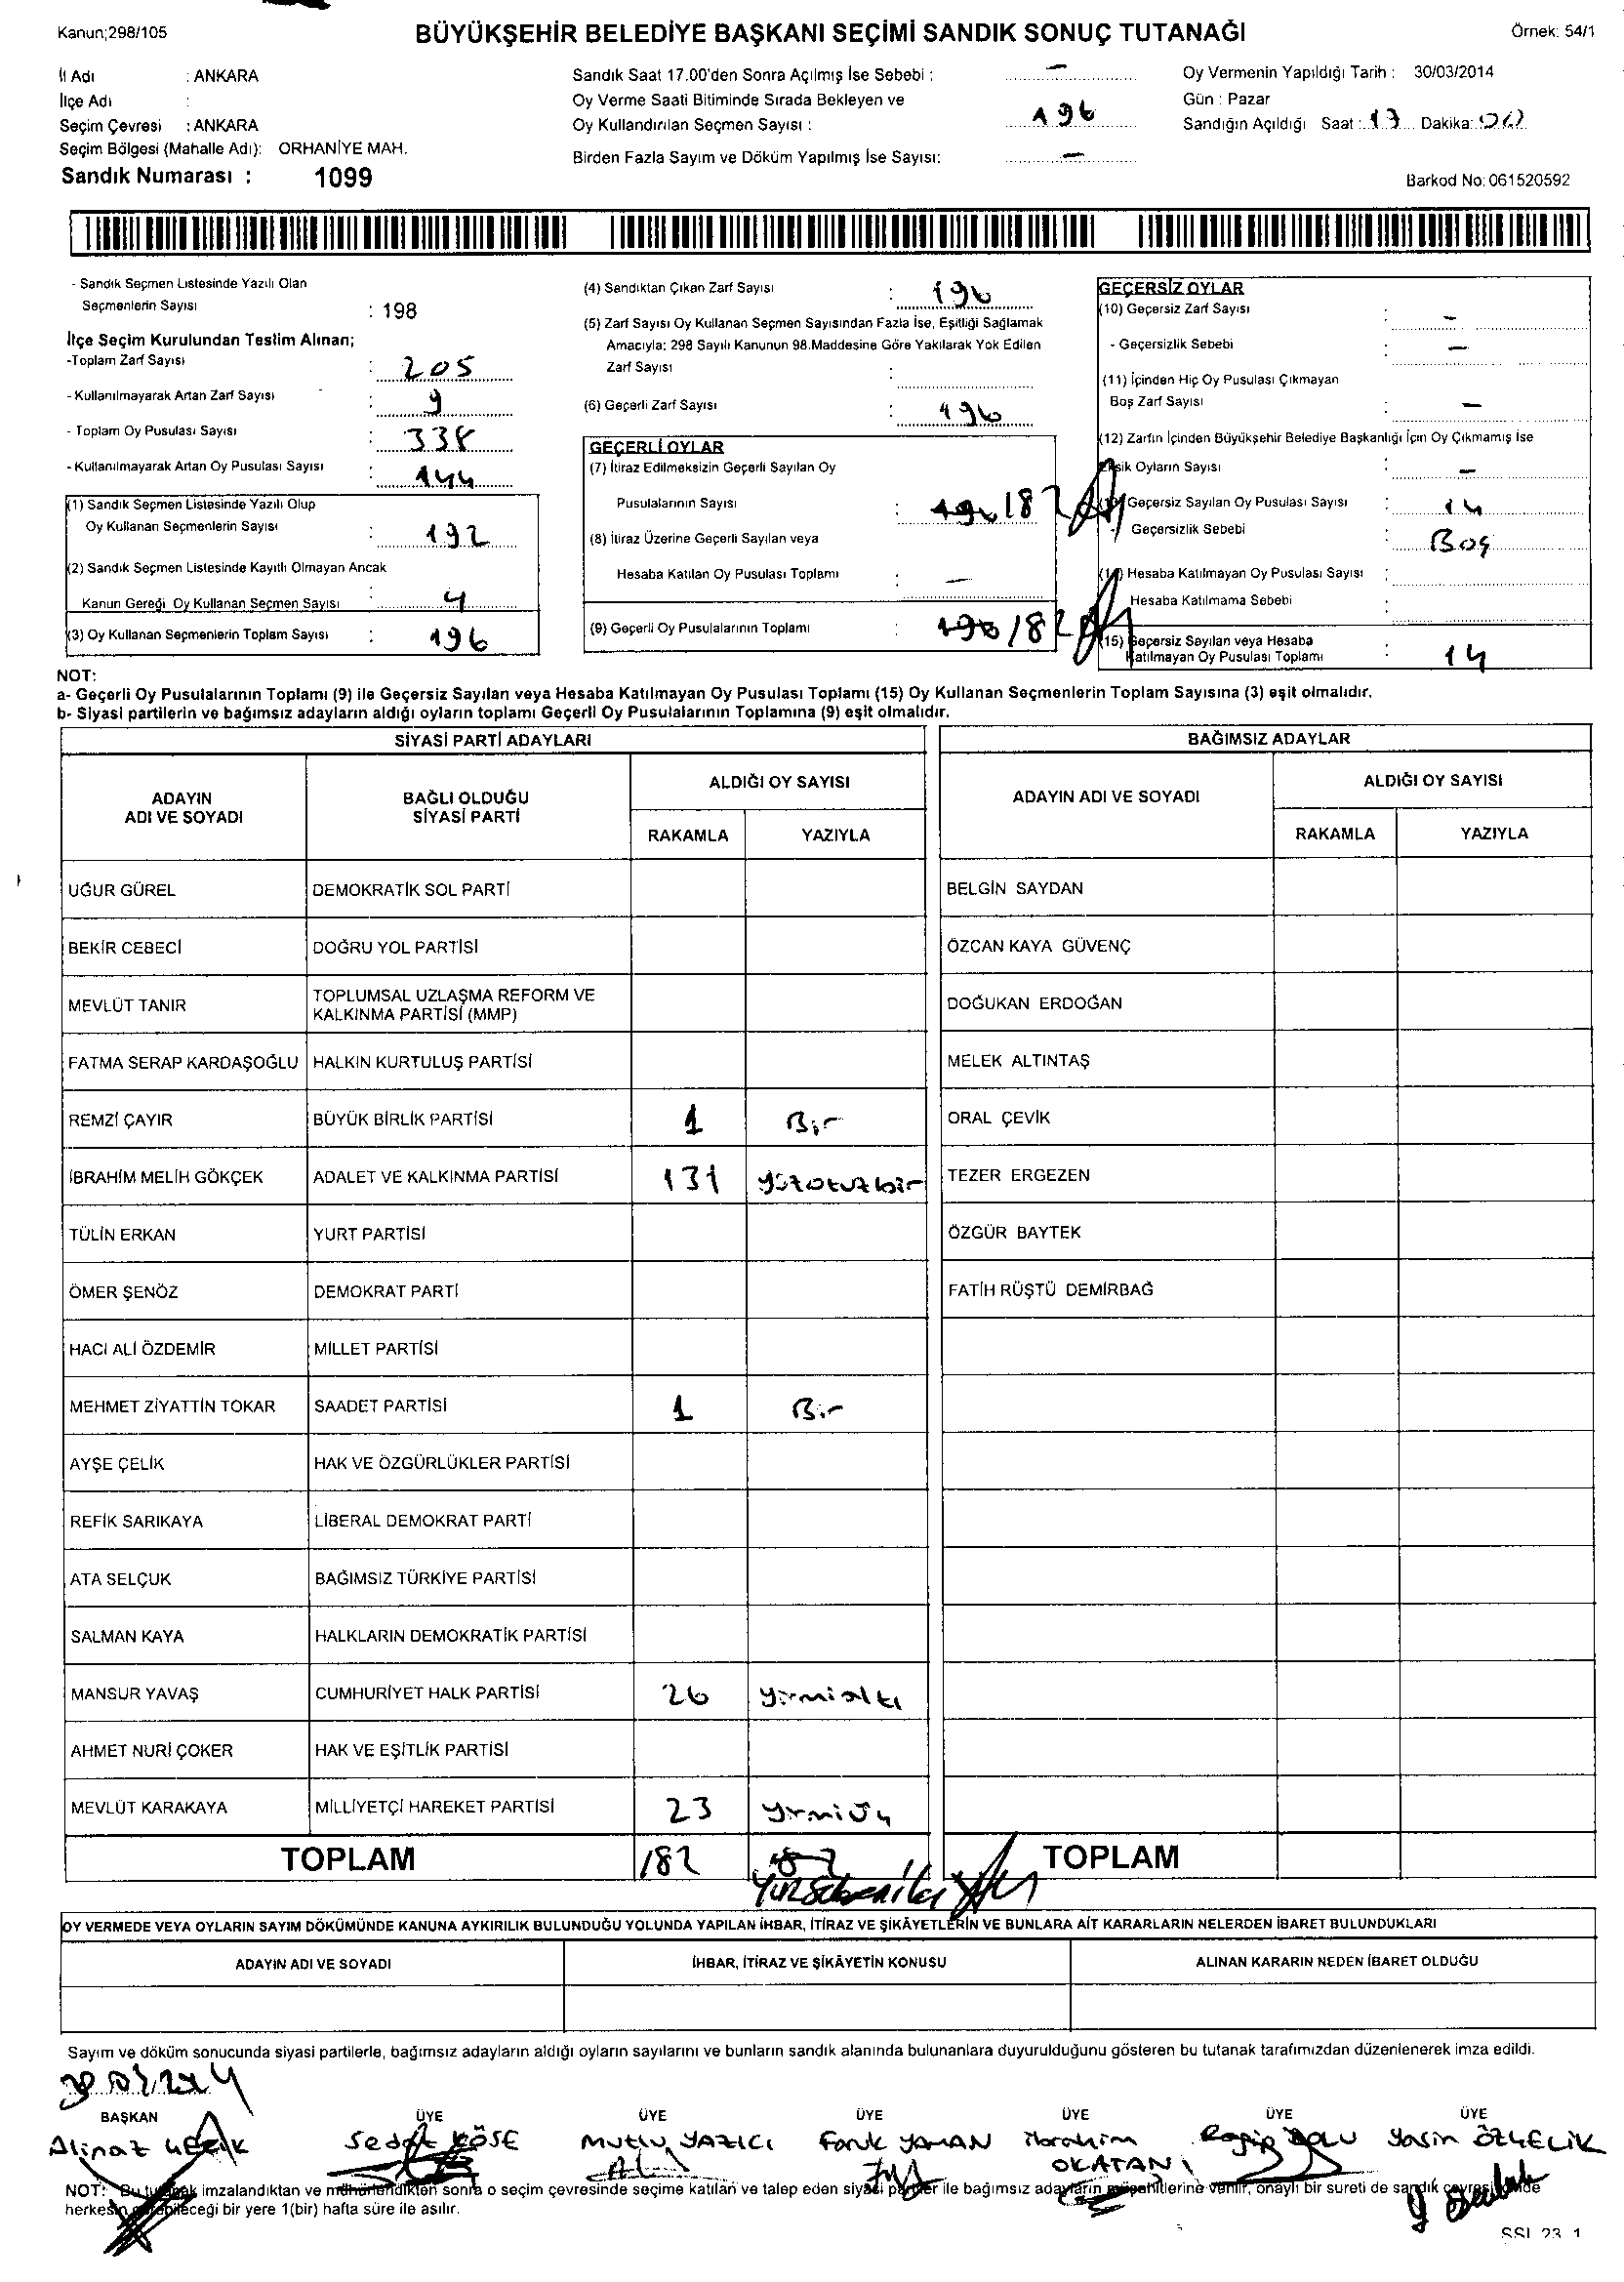 Kanun;298/105
BÜYÜKŞEHİR BELEDİYE BAŞKANI SEÇİMİ SANDIK SONUÇ TUTANAĞI
Örnek: 54/1
İl Adı : ANKARA
İlçe Adı :
Seçim Çevresi : ANKARA
Seçim Bölgesi (Mahalle Adı): ORHANİYE MAH.
Sandık Numarası : 1099
Sandık Saat 17.00'den Sonra Açılmış İse Sebebi : –
Oy Verme Saati Bitiminde Sırada Bekleyen ve
Oy Kullandırılan Seçmen Sayısı : 196
Birden Fazla Sayım ve Döküm Yapılmış İse Sayısı: –
Oy Vermenin Yapıldığı Tarih : 30/03/2014
Gün : Pazar
Sandığın Açıldığı Saat : 17 Dakika: 00
Barkod No: 061520592
- Sandık Seçmen Listesinde Yazılı Olan
Seçmenlerin Sayısı : 198
İlçe Seçim Kurulundan Teslim Alınan;
-Toplam Zarf Sayısı : 205
- Kullanılmayarak Artan Zarf Sayısı : 9
- Toplam Oy Pusulası Sayısı : 338
- Kullanılmayarak Artan Oy Pusulası Sayısı : 144
(1) Sandık Seçmen Listesinde Yazılı Olup
Oy Kullanan Seçmenlerin Sayısı : 192
(2) Sandık Seçmen Listesinde Kayıtlı Olmayan Ancak
Kanun Gereği Oy Kullanan Seçmen Sayısı : 4
(3) Oy Kullanan Seçmenlerin Toplam Sayısı : 196
(4) Sandıktan Çıkan Zarf Sayısı : 196
(5) Zarf Sayısı Oy Kullanan Seçmen Sayısından Fazla İse, Eşitliği Sağlamak
Amacıyla: 298 Sayılı Kanunun 98.Maddesine Göre Yakılarak Yok Edilen
Zarf Sayısı :
(6) Geçerli Zarf Sayısı : 196
GEÇERLİ OYLAR
(7) İtiraz Edilmeksizin Geçerli Sayılan Oy
Pusulalarının Sayısı : 196 182
(8) İtiraz Üzerine Geçerli Sayılan veya
Hesaba Katılan Oy Pusulası Toplamı : –
(9) Geçerli Oy Pusulalarının Toplamı : 196 182
GEÇERSİZ OYLAR
(10) Geçersiz Zarf Sayısı : –
- Geçersizlik Sebebi : –
(11) İçinden Hiç Oy Pusulası Çıkmayan
Boş Zarf Sayısı : –
(12) Zarfın İçinden Büyükşehir Belediye Başkanlığı İçin Oy Çıkmamış İse
Eksik Oyların Sayısı : –
(13) Geçersiz Sayılan Oy Pusulası Sayısı : 14
Geçersizlik Sebebi : Boş
(14) Hesaba Katılmayan Oy Pusulası Sayısı :
Hesaba Katılmama Sebebi :
(15) Geçersiz Sayılan veya Hesaba
Katılmayan Oy Pusulası Toplamı : 14
NOT:
a- Geçerli Oy Pusulalarının Toplamı (9) ile Geçersiz Sayılan veya Hesaba Katılmayan Oy Pusulası Toplamı (15) Oy Kullanan Seçmenlerin Toplam Sayısına (3) eşit olmalıdır.
b- Siyasi partilerin ve bağımsız adayların aldığı oyların toplamı Geçerli Oy Pusulalarının Toplamına (9) eşit olmalıdır.
SİYASİ PARTİ ADAYLARI
ADAYIN ADI VE SOYADI
BAĞLI OLDUĞU SİYASİ PARTİ
ALDIĞI OY SAYISI
RAKAMLA YAZIYLA
UĞUR GÜREL DEMOKRATİK SOL PARTİ
BEKİR CEBECİ DOĞRU YOL PARTİSİ
MEVLÜT TANIR TOPLUMSAL UZLAŞMA REFORM VE
KALKINMA PARTİSİ (MMP)
FATMA SERAP KARDAŞOĞLU HALKIN KURTULUŞ PARTİSİ
REMZİ ÇAYIR BÜYÜK BİRLİK PARTİSİ 1 Bir
İBRAHİM MELİH GÖKÇEK ADALET VE KALKINMA PARTİSİ 131 yüzotuzbir
TÜLİN ERKAN YURT PARTİSİ
ÖMER ŞENÖZ DEMOKRAT PARTİ
HACI ALİ ÖZDEMİR MİLLET PARTİSİ
MEHMET ZİYATTİN TOKAR SAADET PARTİSİ 1 Bir
AYŞE ÇELİK HAK VE ÖZGÜRLÜKLER PARTİSİ
REFİK SARIKAYA LİBERAL DEMOKRAT PARTİ
ATA SELÇUK BAĞIMSIZ TÜRKİYE PARTİSİ
SALMAN KAYA HALKLARIN DEMOKRATİK PARTİSİ
MANSUR YAVAŞ CUMHURİYET HALK PARTİSİ 26 yirmialtı
AHMET NURİ ÇOKER HAK VE EŞİTLİK PARTİSİ
MEVLÜT KARAKAYA MİLLİYETÇİ HAREKET PARTİSİ 23 yirmiüç
TOPLAM 182 182
yüzsekseniki
BAĞIMSIZ ADAYLAR
ADAYIN ADI VE SOYADI
ALDIĞI OY SAYISI
RAKAMLA YAZIYLA
BELGİN SAYDAN
ÖZCAN KAYA GÜVENÇ
DOĞUKAN ERDOĞAN
MELEK ALTINTAŞ
ORAL ÇEVİK
TEZER ERGEZEN
ÖZGÜR BAYTEK
FATİH RÜŞTÜ DEMİRBAĞ
TOPLAM
OY VERMEDE VEYA OYLARIN SAYIM DÖKÜMÜNDE KANUNA AYKIRILIK BULUNDUĞU YOLUNDA YAPILAN İHBAR, İTİRAZ VE ŞİKÂYETLERİN VE BUNLARA AİT KARARLARIN NELERDEN İBARET BULUNDUKLARI
ADAYIN ADI VE SOYADI
İHBAR, İTİRAZ VE ŞİKÂYETİN KONUSU
ALINAN KARARIN NEDEN İBARET OLDUĞU
Sayım ve döküm sonucunda siyasi partilerle, bağımsız adayların aldığı oyların sayılarını ve bunların sandık alanında bulunanlara duyurulduğunu gösteren bu tutanak tarafımızdan düzenlenerek imza edildi.
BAŞKAN ÜYE ÜYE ÜYE ÜYE ÜYE ÜYE
Sedat KÖSE Mutlu YAZICI Faruk YAMAN İbrahim OKATAN Ragıp Yasin ÖZÇELİK
NOT: Bu tutanak imzalandıktan ve mühürlendikten sonra o seçim çevresinde seçime katılan ve talep eden siyasi partiler ile bağımsız adayların müşahitlerine verilir, onaylı bir sureti de sandık çevresi içinde
herkesin görebileceği bir yere 1(bir) hafta süre ile asılır.
SSI 23 1